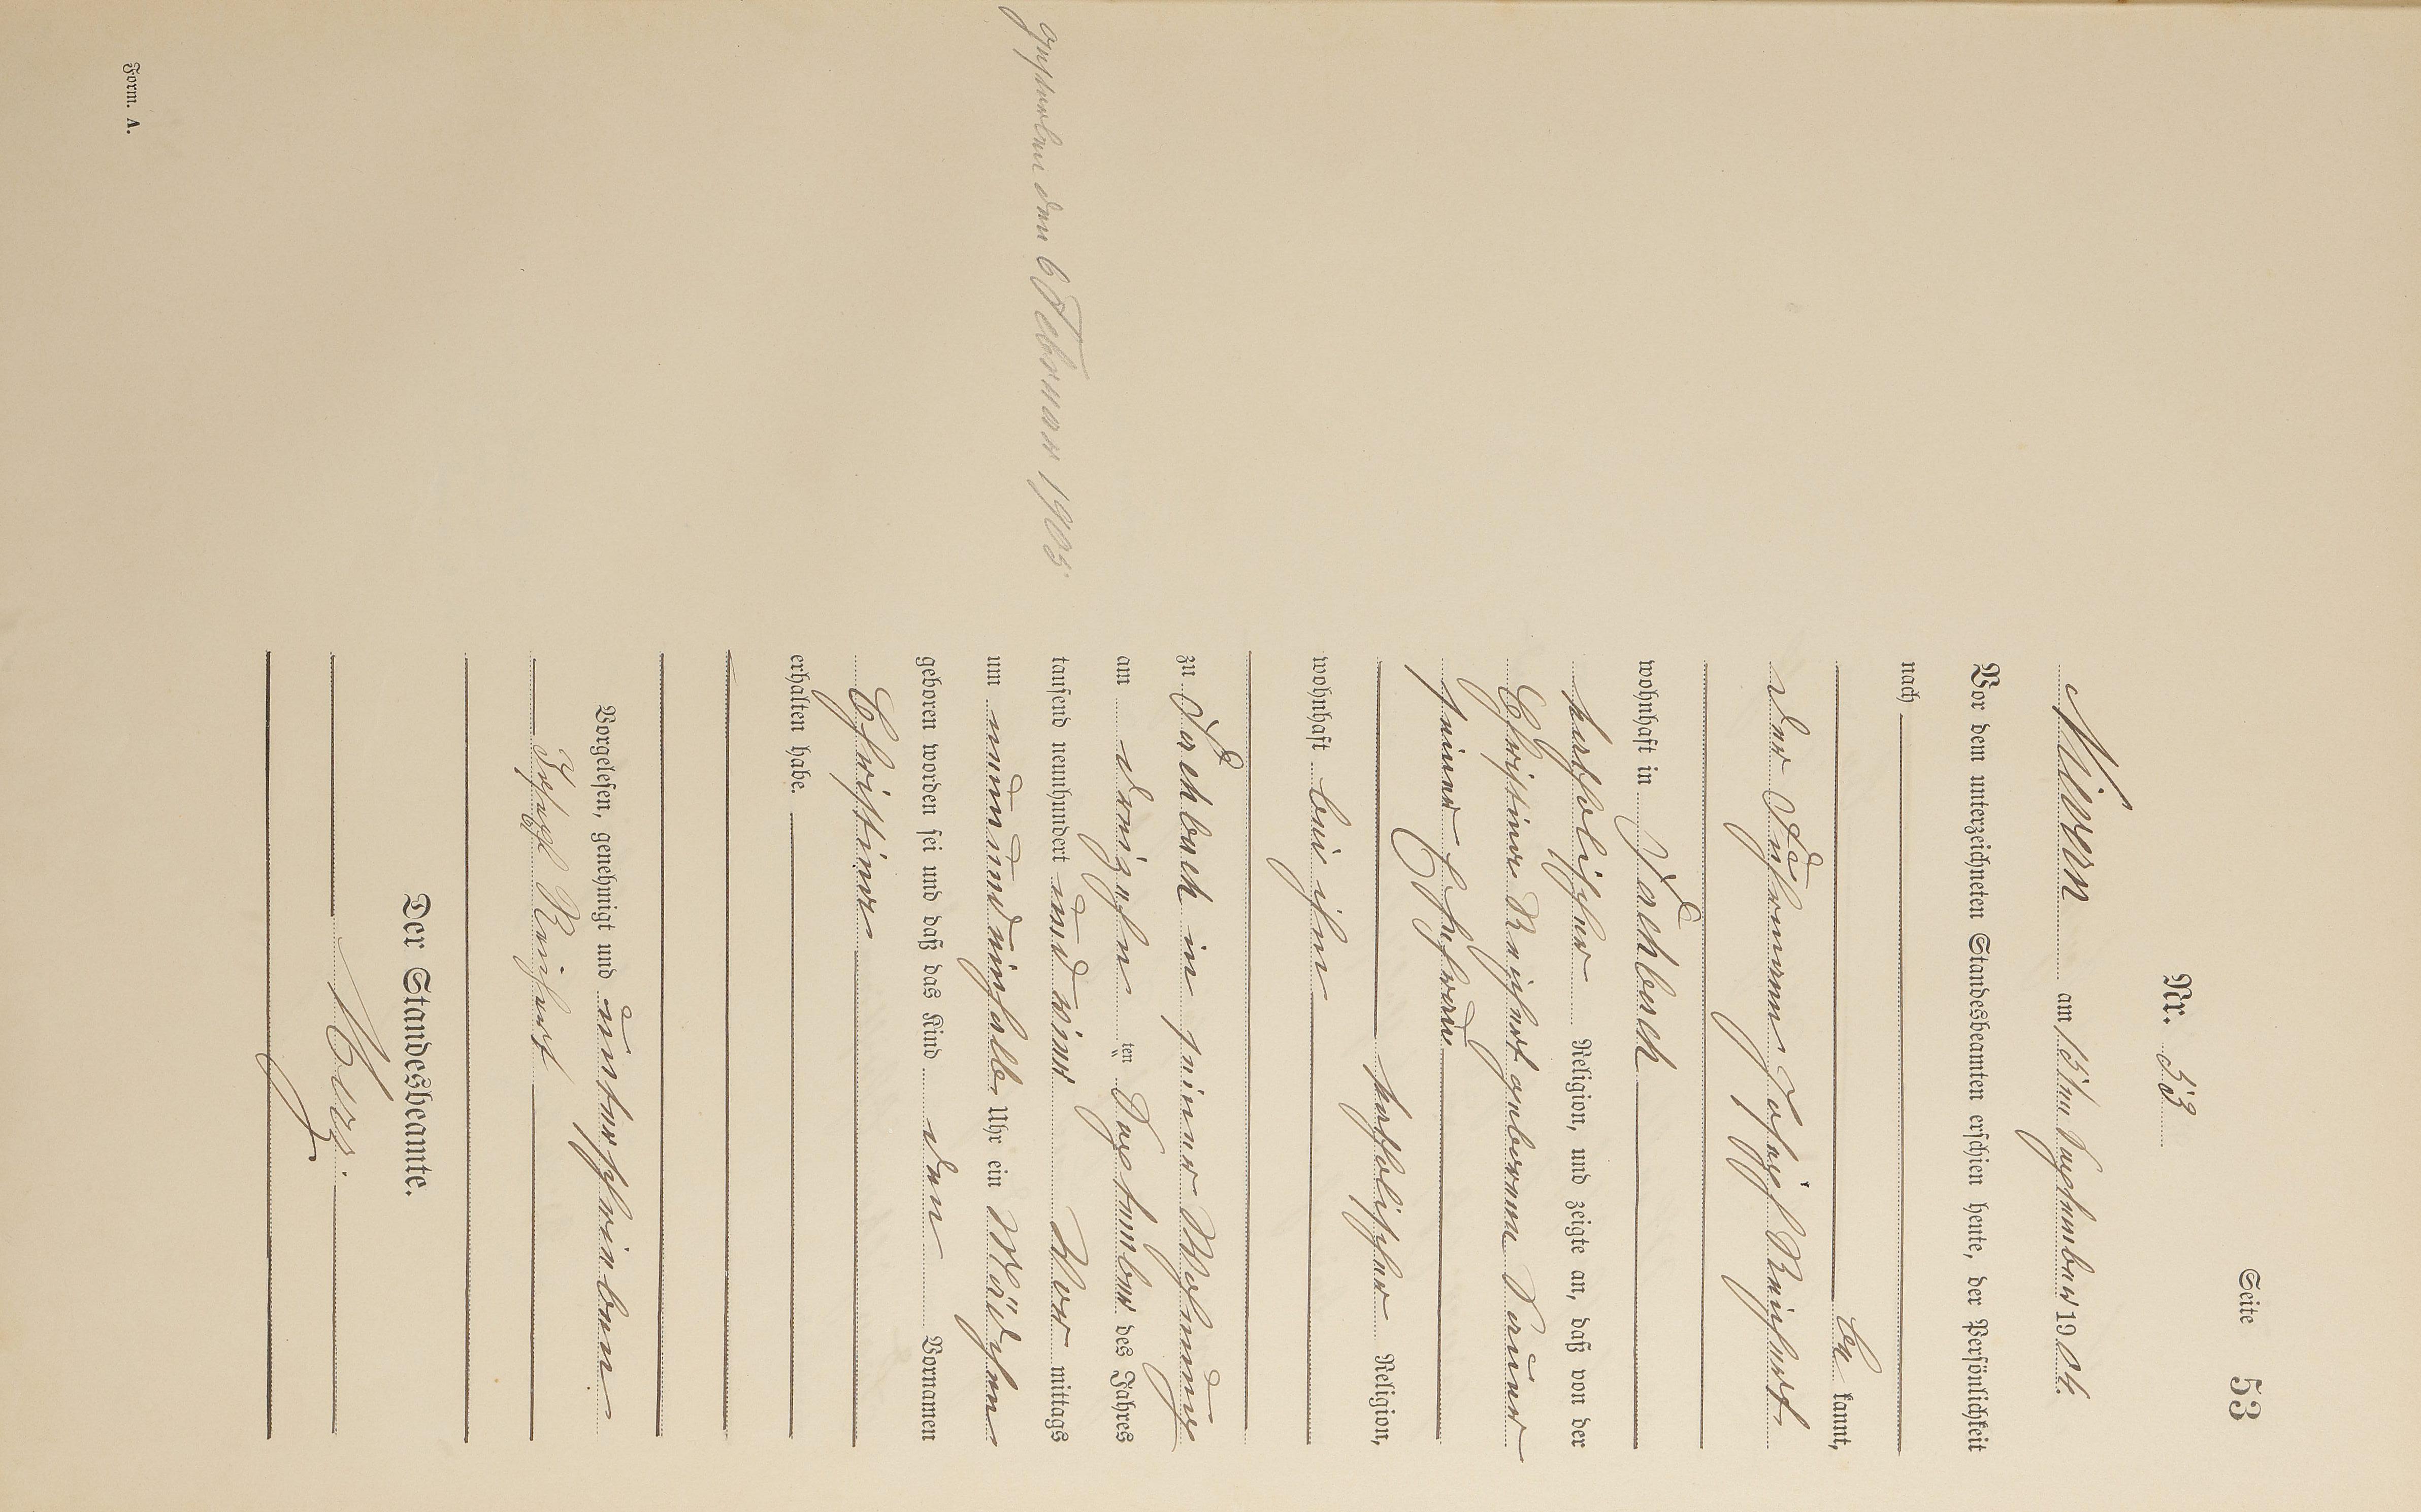 Seite 53
Nr. 53
Nievern am 15ten September 1904.
Vor dem unterzeichneten Standesbeamten erschien heute, der Persönlichkeit
nach
be kannt,
der Fuhrmann Josef Reichert
wohnhaft in Fachbach
katholischer Religion, und zeigte an, daß von der
Christine Reichert geborene Bauer
seiner Ehefrau
katholischer Religion,
wohnhaft bei ihm
zu Fachbach in seiner Wohnung
am dreizehn ten September des Jahres
tausend neunhundert und vier Vor mittags
um neunundeinhalb Uhr ein Mädchen
geboren worden sei und daß das Kind den Vornamen
Christine
erhalten habe.
Vorgelesen, genehmigt und unterschrieben
Josef Reichert
Der Standesbeamte.
gestorben den 6 Februar 1905
Form. A.